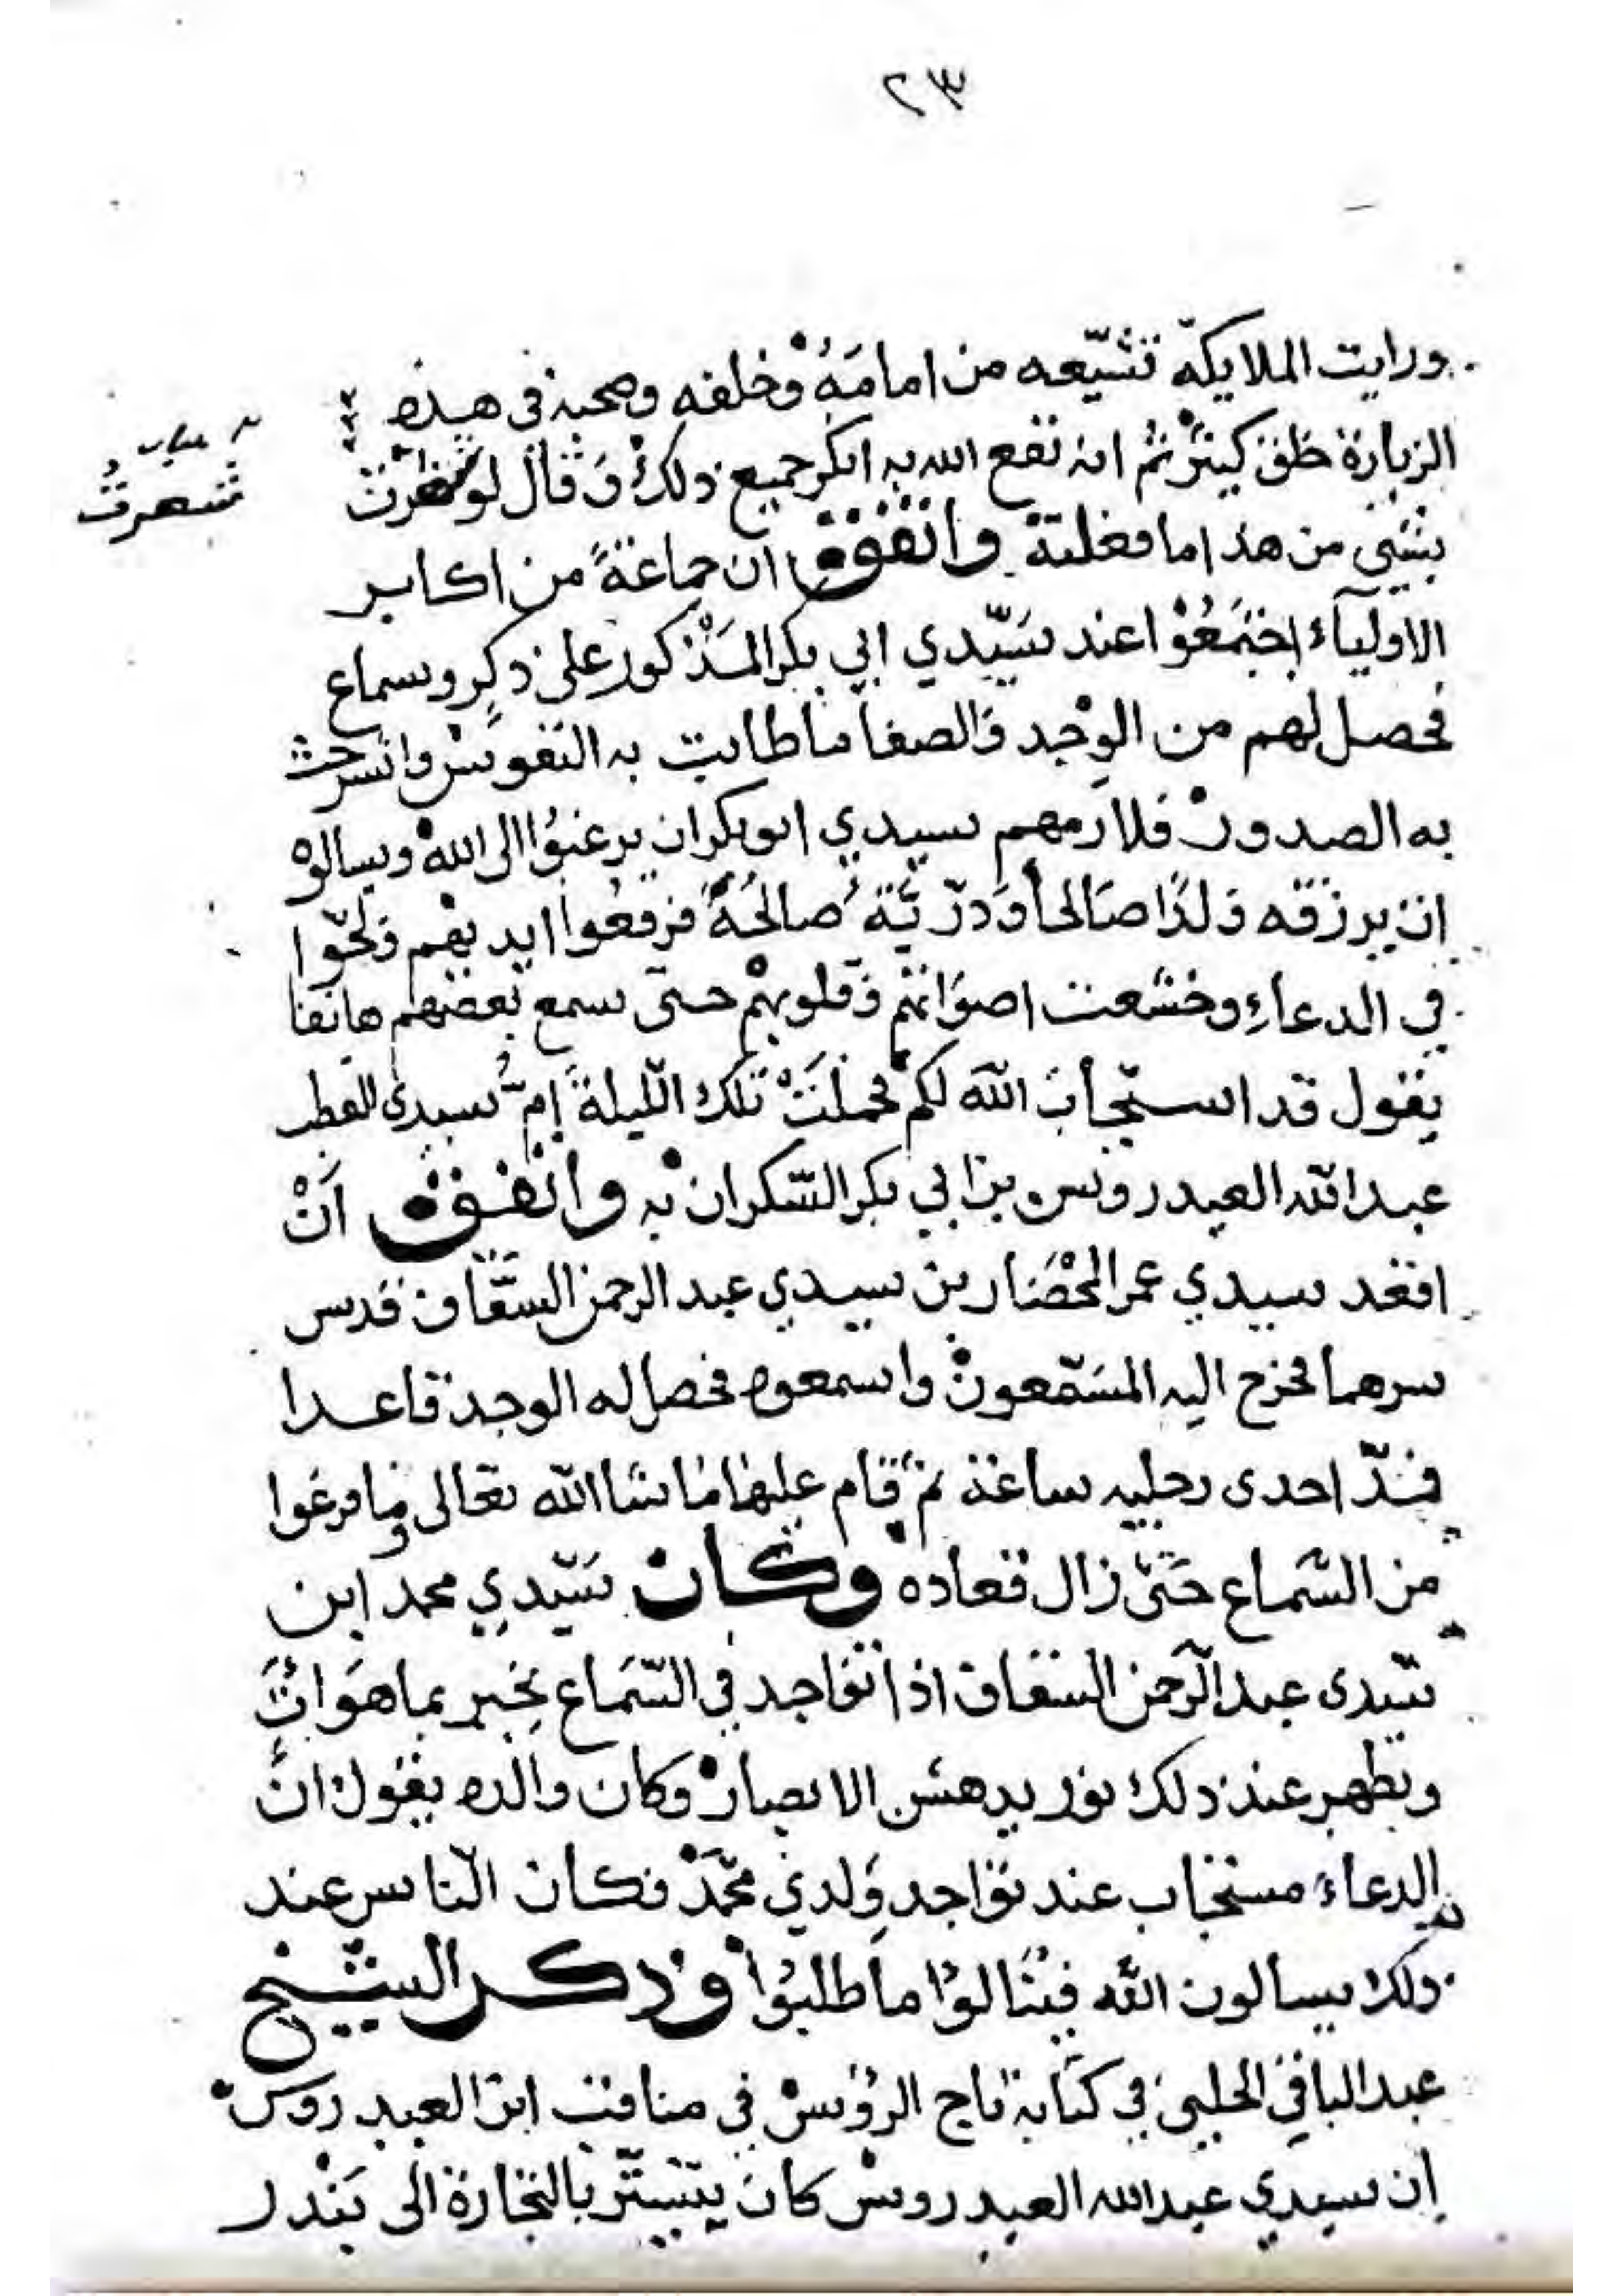 ٢٣
ورايت الملايكة تشيّعه من امامَهُ وخلفه وصحبه في هذه
الزيارة خلق كثيرٌ ثم انه نفع الله به انكر جميع ذلك وقال لو شعرت
شعرتُ
بشيٍ من هذا ما فعلته واتفق ان جماعةً من اكابر
الاوليآء اجتمَعُوْا عند سَيّدي ابي بكر المَذْكور على ذكرٍ وسماع
فحصل لهم من الوِجْد والصفا ما طابت به النفوس وانشرحت
به الصدور فلازمهم سيدي ابو بكر ان يرغبُوا الى الله ويسالوْه
ان يرزقه ولدًا صَالحاً وَذرّيَّةً صالحَةً فرفعُوا ايديهم ولحّوا
في الدعاءِ وخشعت اصوَاتهُم وقلوبهُم حتى سمع بعضهم هاتفا
يقول قد استجابَ اللّه لكم فحملَتْ تلك اللّيلةَ اِمُّ سيدي القطب
عبد اللّه العيدروس بن ابي بكر السّكران به واتفق اَنْ
اقعد سيدي عمر المحْضَار بن سيدي عبد الرحمن السّقّاف قدس
سرهما فخرج اليه المسَمّعونْ واسمعوه فحصل له الوجد قاعدا
فمدّ احدى رجليه ساعة ثم قام عليها ما شا اللّه تعالى وما فرغوا
من السّمَاع حَتى زال قعاده وكان سَيّدي محمد ابن
سَيّدي عبد الرّحمن السقاف اذا تواجد في السّمَاع يخبر بما هوَ اتٍ
ويظهر عند ذلك نور يدهش الابصارْ وكان والده يقول انَّ
الدعاءَ مستجاب عند تواجد وَلدي محمّدْ فكان النّاس عند
ذلك يسالون اللّه فينَالوُا ما طلبوُا وذكر الشيخ
عبد الباقي الحلبي في كتابه تاج الرؤس في مناقب ابن العيدروسْ
اِن سيدي عبد الله العيدروس كان يتستّر بالتجارة الى بَنْدر